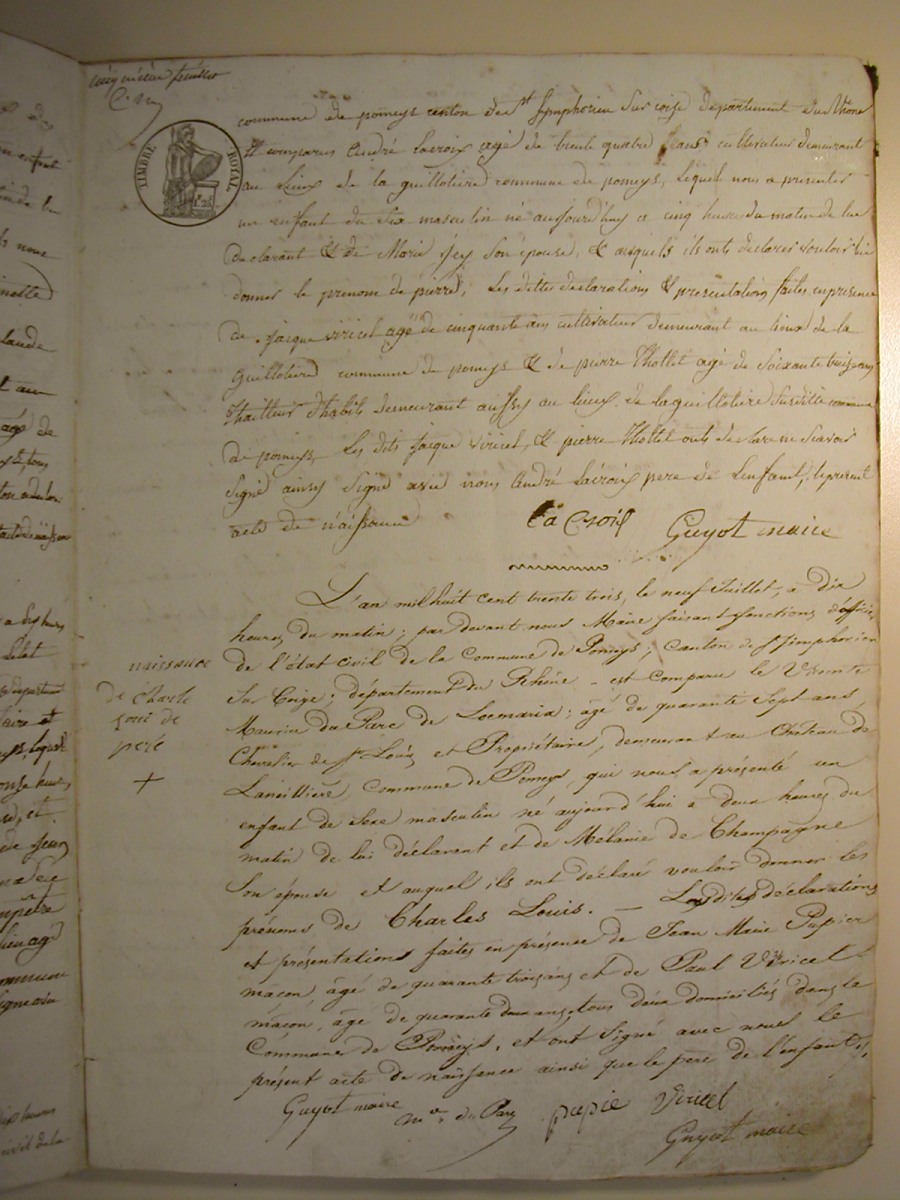 feuillet
TIMBRE ROYAL
1F.25
commune de pomeys canton de St Symphorien Sur coise département du Rhône
& comparus André Lacroix agé de trente quatre ans cultivateur demeurant
au Lieux de la guillotière commune de pomeys, Lequel nous a présenter
un enfant du Sex masculin né aujourd'huy a cinq heure du matin de lui
declarant & de Marie fey Son épouse, & auquels ils onts declarés vouloir lui
donner le prenom de pierre, Les dittes declarations & presentations faites en présence
de jaque viricel agé de cinquante ans cultivateur demeurant au lieux de la
guillotière commune de pomeys & de pierre Thollet agé de Soixante treize ans
thailleur d'habits demeurant aussy au lieux de la guillotière Susditte commune
de pomeys, Les dits jaque viricel, & pierre thollet onts declare ne Scavoir
Signé ainsy Signé avec nous André Lacroix pere de Lenfant, le présent
acte de naissance
la Croix
Guyot maire
L'an mil huit cent trente trois, le neuf Juillet, à dix
heures du matin; par devant nous Maire faisant fonctions d'officier
de l'état civil de la Commune de Pomeys; Canton de St Simphorien
Sur Coize; département du Rhône - est Comparu le Vicomte
Maurin du Parc de Locmaria; âgé de quarante Sept ans,
Chevalier de St Louis et Propriétaire, demeurant au Château de
Laneillière, Commune de Pomeys, qui nous a présenté un
enfant de Sexe masculin né aujourd'hui à deux heures du
matin de lui déclarent et de Mélanie de Champagne
Son épouse et auquel ils ont déclaré vouloir donner les
prénoms de Charles Louis. — Lesdites déclarations
et présentations faites en présence de Jean Marie Papier
maçon âgé de quarante trois ans et de Paul Viricel
maçon, âgé de quarante deux ans, tous deux domiciliés dans la
Commune de Pomeys, et ont Signé avec nous le
présent acte de naissance ainsi que le père de l'enfant.
naissance
de Charle
Loui de
peré
+
Guyot maire
du Parc
papie
Viricel
Guyot maire